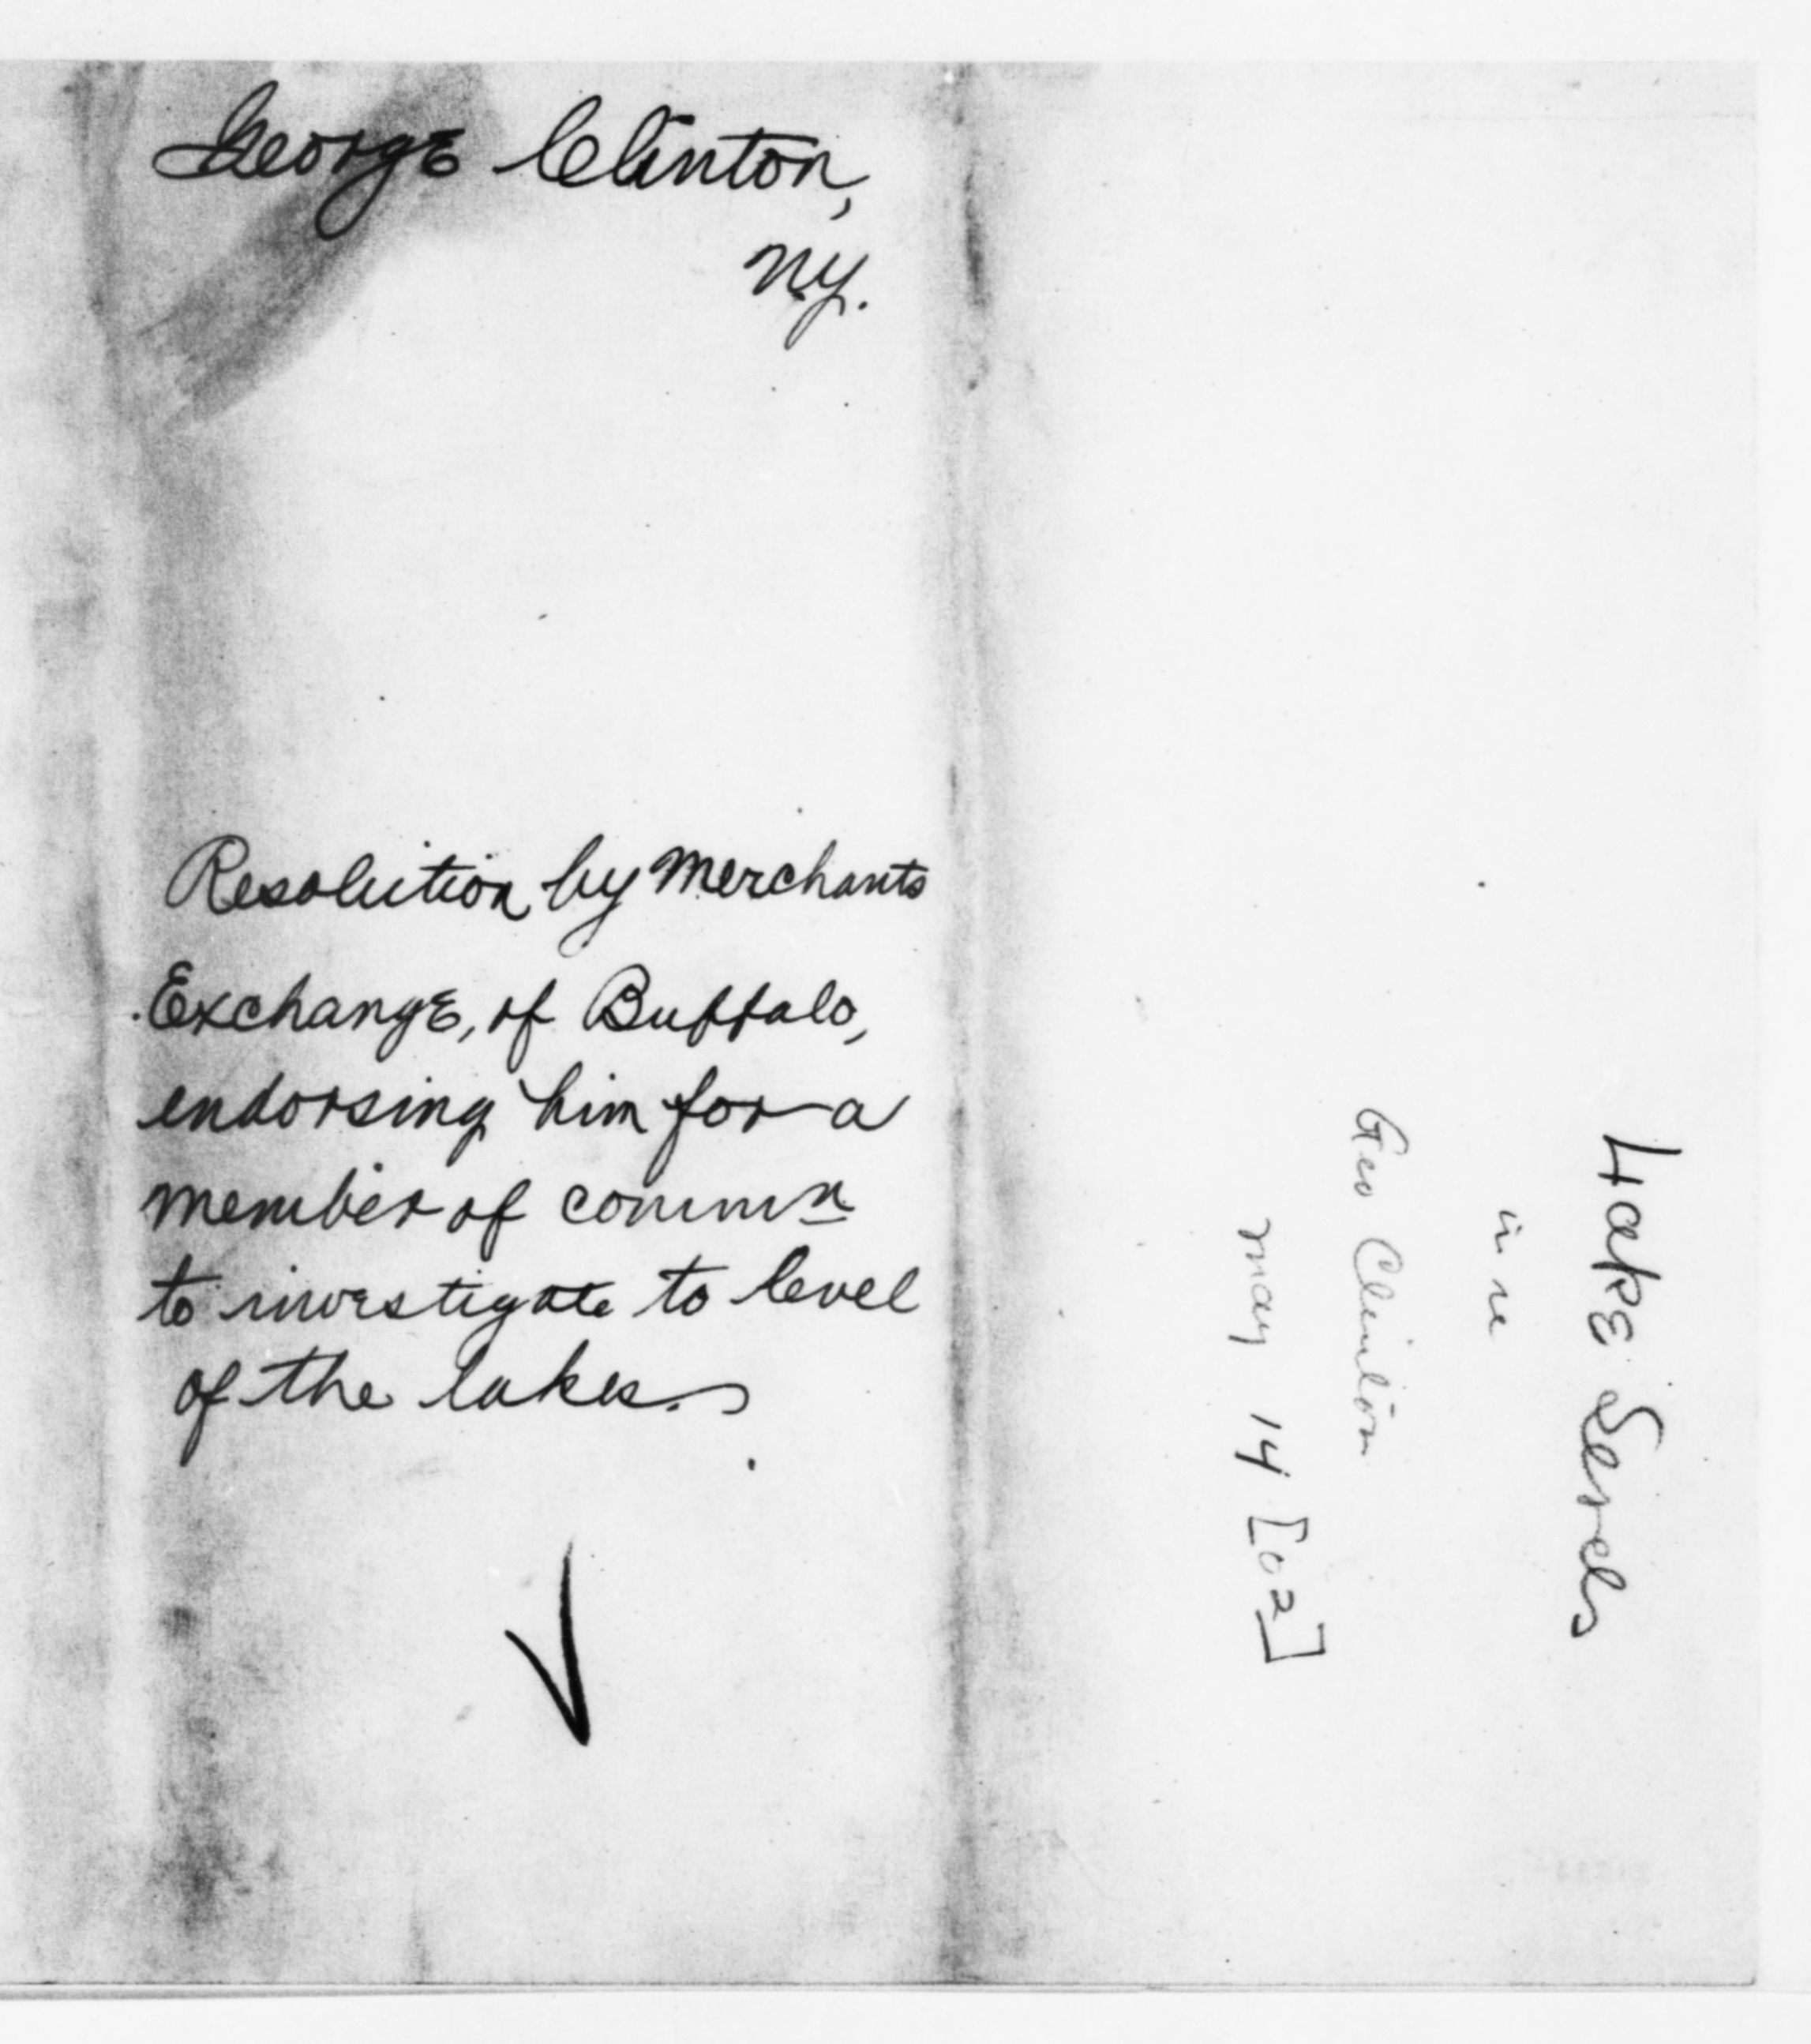 George Clinton,
N.Y.
Resolution by Merchants
Exchange, of Buffalo,
endorsing him for a
member of commn
to investigate to level
of the lakes.
Lake Levels
in re
Geo Clinton
May 14 [02]